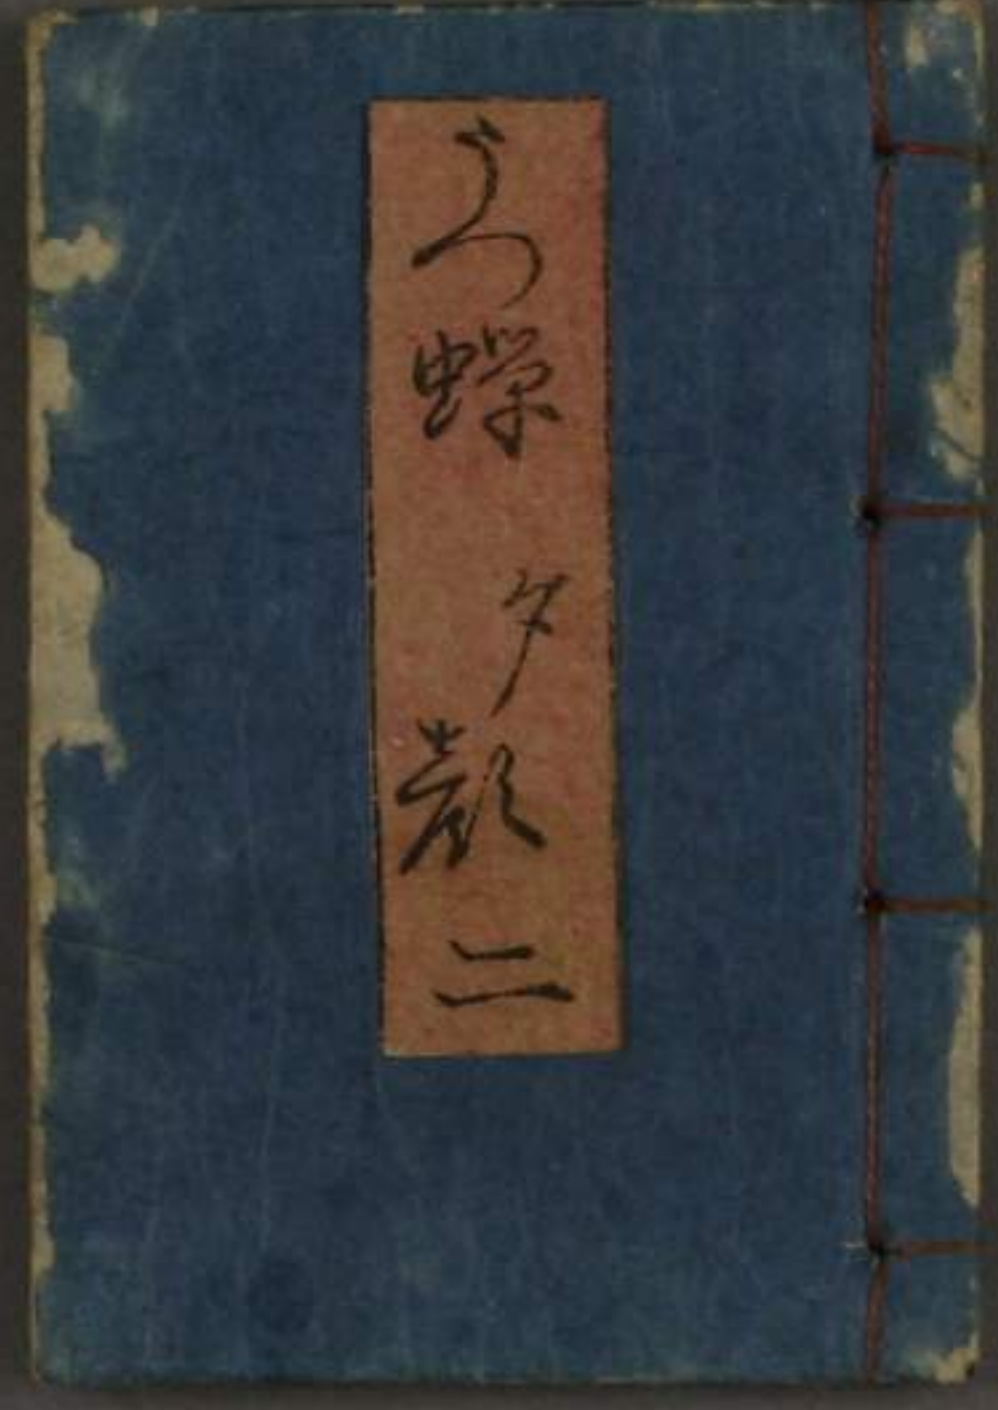 うつ蝉
夕顔
二